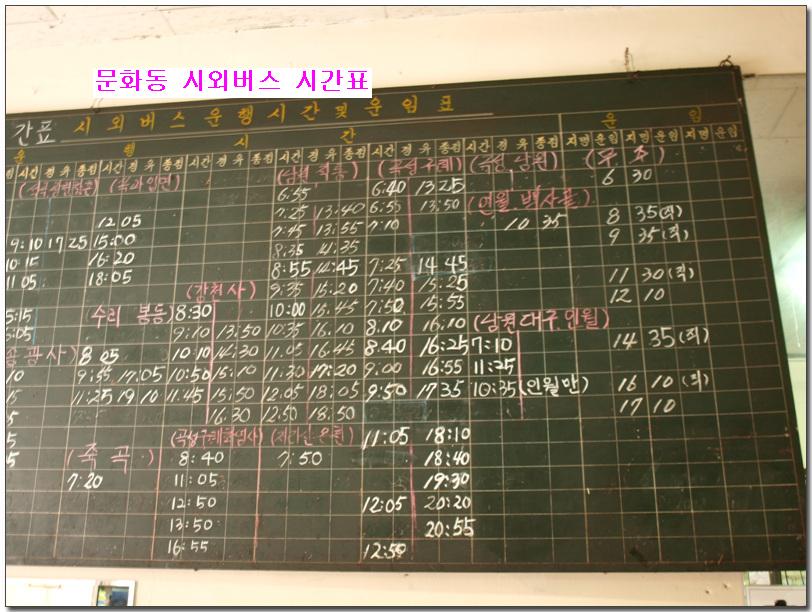 문화동 시외버스 시간표
간표 시외버스운행시간및운임표
운 행 시 간 운 임
시간 경유 종점 시간 경유 종점 시간 경유 종점 시간 경유 종점 시간 경유 종점 시간 경유 종점 지명 운임 지명 운임 지명 운임
(곡성 구례) (곡성 남원)
6:55 6:40 13:25 6 30
7:25 13:40 6:55 13:50 (인월 백사골)
12:05 7:45 13:55 7:10 10 35 8 35(직)
9:10 17:25 15:00 8:35 14:35 9 35(직)
10:15 16:20 8:55 14:45 7:25 14:45
11:05 18:05 (감천사) 9:35 15:20 7:40 15:25 11 30(직)
5:15 (수리 봉동) 8:30 10:00 15:45 7:50 15:55 12 10
5:05 9:10 13:50 10:35 16:10 8:10 16:10 (남원대구인월)
송광사) 8:05 10:10 14:30 11:05 16:45 8:40 16:25 7:10 14 35(직)
10 9:55 17:05 10:50 15:10 11:30 17:20 9:00 16:55 11:25
15 11:25 19:10 11:45 15:50 12:05 18:05 9:50 17:35 10:35(인월만) 16 10(직)
5 16:30 12:50 18:50 17 10
5 11:05 18:10
5 (죽곡) 8:40 7:50 18:40
7:20 11:05 19:30
12:50 12:05 20:20
13:50 20:55
16:55 12:50